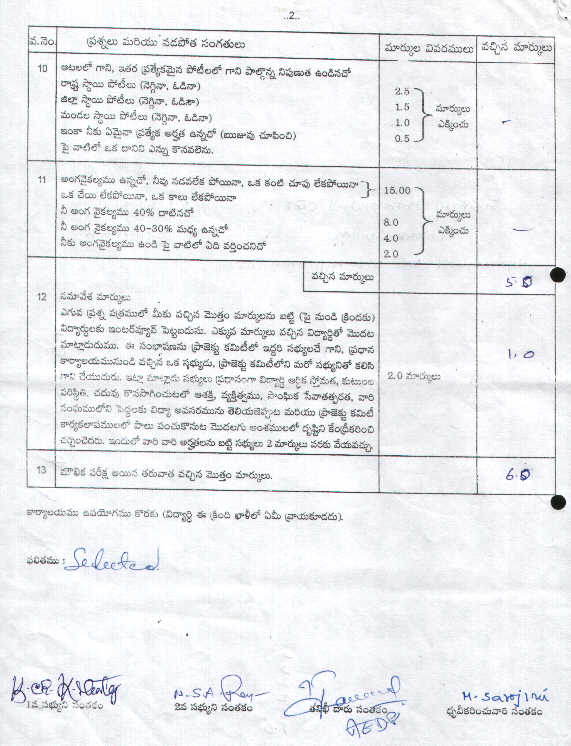 ..2..
వ.నెం. ప్రశ్నలు మరియు నడపోత సంగతులు మార్కుల వివరములు వచ్చిన మార్కులు
10 ఆటలలో గాని, ఇతర ప్రత్యేకమైన పోటీలలో గాని పాల్గొన్న నిపుణత ఉండినచో
రాష్ట్ర స్థాయి పోటీలు (నెగ్గినా, ఓడినా) 2.5
జిల్లా స్థాయి పోటీలు (నెగ్గినా, ఓడినా) 1.5 మార్కులు
మండల స్థాయి పోటీలు (నెగ్గినా, ఓడినా) 1.0 ఎక్కించు -
ఇంకా నీకు ఏమైనా ప్రత్యేక అర్హత ఉన్నచో (ఋజువు చూపించి) 0.5
పై వాటిలో ఒక దానిని ఎన్ను కొనవలెను.
11 అంగవైకల్యము ఉన్నచో, నీవు నడవలేక పోయినా, ఒక కంటి చూపు లేకపోయినా 15.00
ఒక చేయి లేకపోయినా, ఒక కాలు లేకపోయినా
నీ అంగ వైకల్యము 40% దాటినచో 8.0 మార్కులు
నీ అంగ వైకల్యము 40-30% మధ్య ఉన్నచో 4.0 ఎక్కించు -
నీకు అంగవైకల్యము ఉండి పై వాటిలో ఏది వర్తించనిచో 2.0
వచ్చిన మార్కులు 5.0
12 సమావేశ మార్కులు
ఎగువ ప్రశ్న పత్రములో మీకు వచ్చిన మొత్తం మార్కులను బట్టి (పై నుండి క్రిందకు)
విద్యార్థులకు ఇంటర్వ్యూవ్ పెట్టబడును. ఎక్కువ మార్కులు వచ్చిన విద్యార్థితో మొదట
మాట్లాడుదుము. ఈ సంభాషణను ప్రాజెక్టు కమిటీలో ఇద్దరి సభ్యులచే గాని, ప్రధాన 1.0
కార్యాలయమునుండి వచ్చిన ఒక సభ్యుడు, ప్రాజెక్టు కమిటీలోని మరో సభ్యునితో కలిసి
గాని చేయుదురు. ఇట్లా మాట్లాడు సభ్యులు ప్రధానంగా విద్యార్థి ఆర్థిక స్తోమత, కుటుంబ 2.0 మార్కులు
పరిస్థితి, చదువు కొనసాగించుటలో ఆశక్తి, వ్యక్తిత్వము, సాంఘిక సేవాతత్పరత, వారి
సంఘములోని పెద్దలకు విద్య అవసరమును తెలియజెప్పుట మరియు ప్రాజెక్టు కమిటీ
కార్యకలాపములలో పాలు పంచుకొనుట మొదలగు అంశములలో దృష్టిని కేంద్రీకరించి
చర్చించెదరు. ఇందులో వారి వారి అర్హతలను బట్టి సభ్యులు 2 మార్కులు వరకు వేయవచ్చు.
13 మౌఖిక పరీక్ష అయిన తరువాత వచ్చిన మొత్తం మార్కులు. 6.0
కార్యాలయము ఉపయోగము కొరకు (విద్యార్థి ఈ క్రింది ఖాళీలో ఏమీ వ్రాయకూడదు).
ఫలితము : Selected
N.S.A M. Sarojini
1వ సభ్యుని సంతకం 2వ సభ్యుని సంతకం తనిఖీ దారు సంతకం ధృవీకరించువారి సంతకం
AEDS